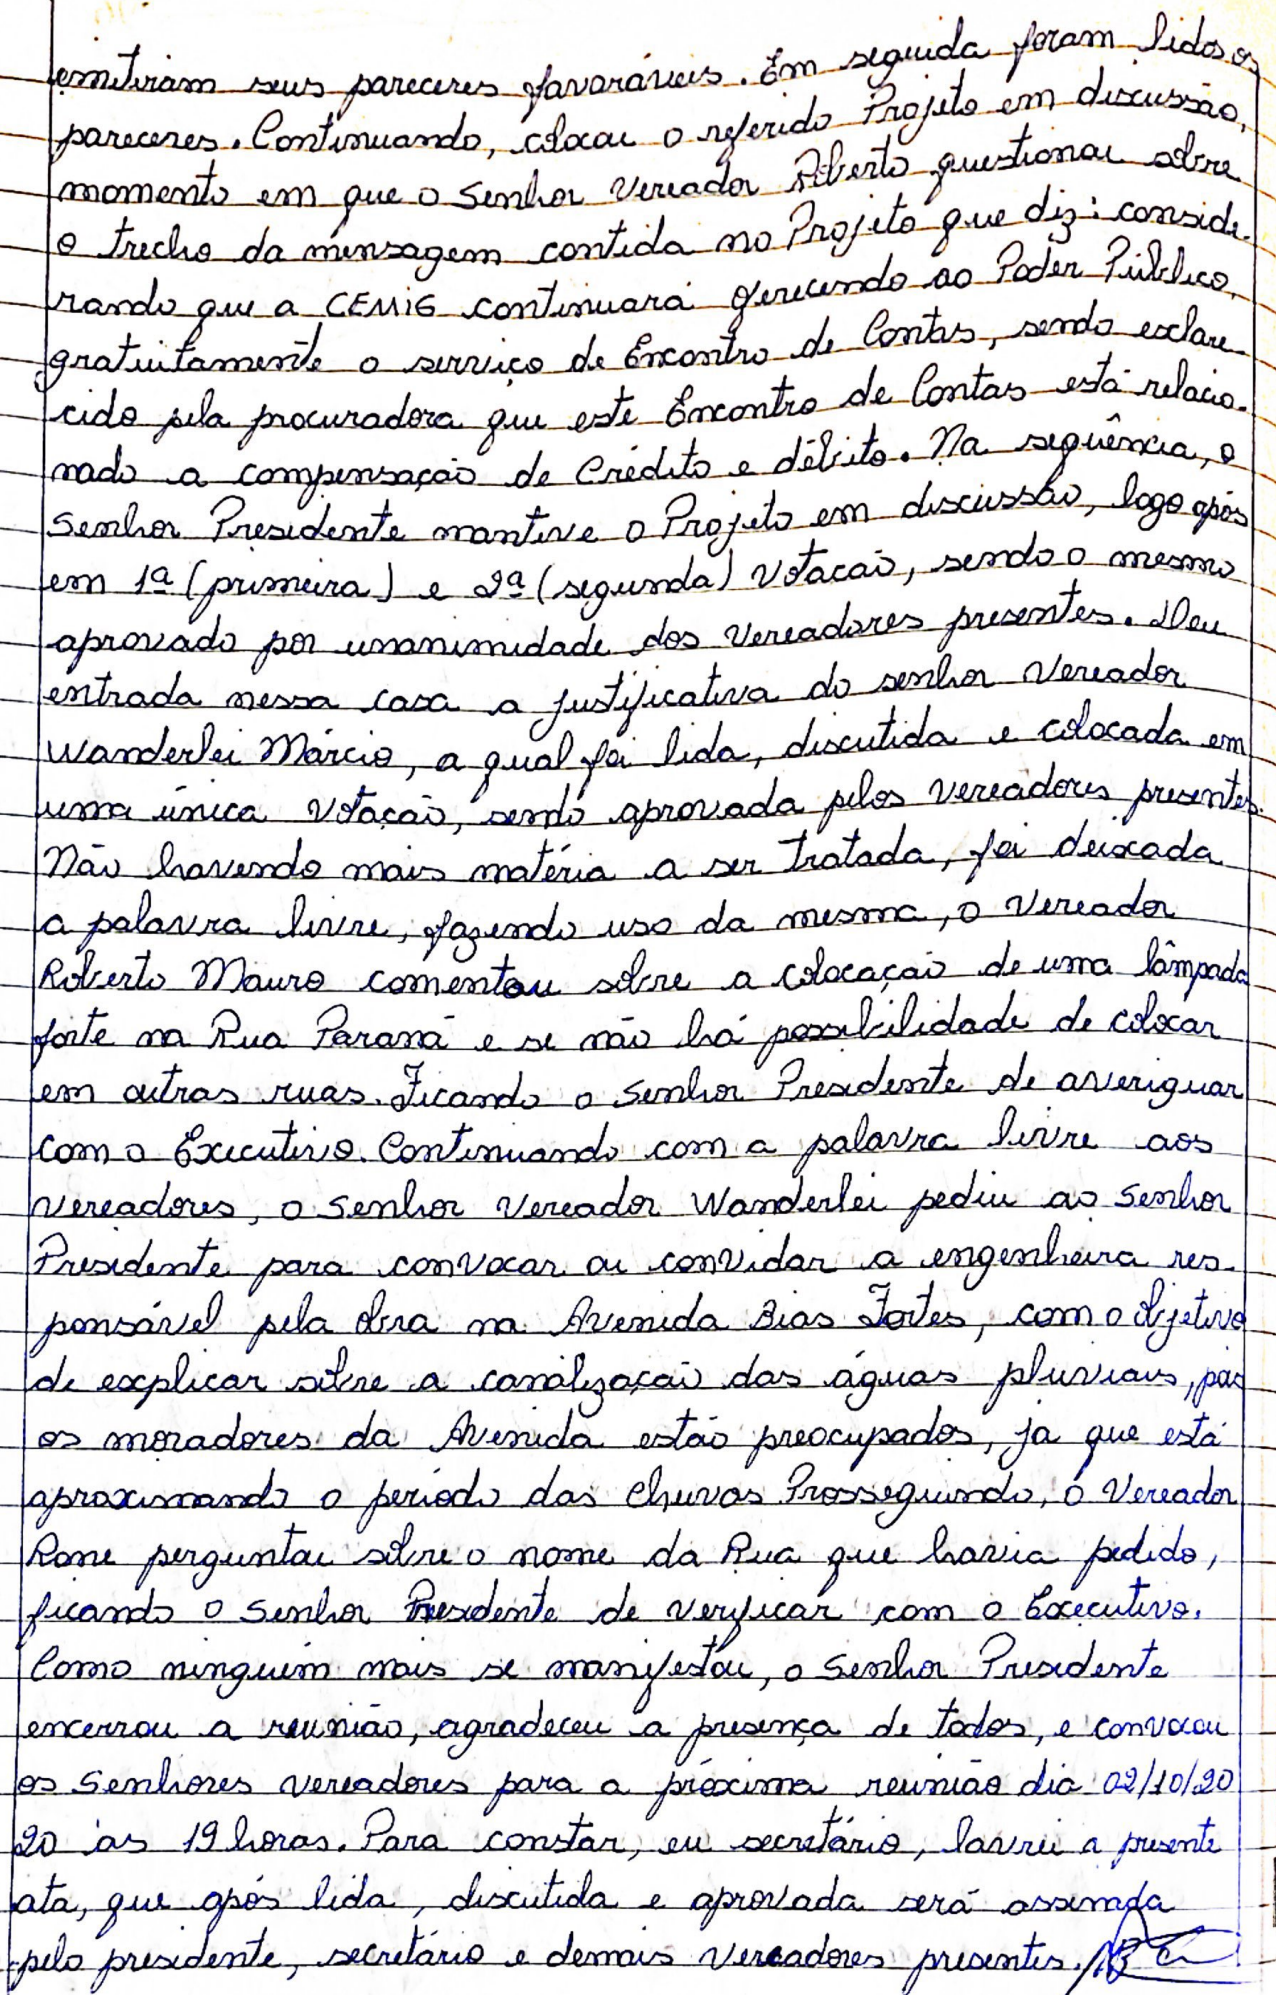 emitiram seus pareceres favoráveis. Em seguida foram lidos os
pareceres. Continuando, colocou o referido Projeto em discussão,
momento em que o Senhor Vereador Roberto questionou sobre
o trecho da mensagem contida no Projeto que diz: conside-
rando que a CEMIG continuará oferecendo ao Poder Público,
gratuitamente o serviço de Encontro de Contas, sendo esclare-
cido pela procuradora que este Encontro de Contas está relacio-
nado a compensação de Crédito e débito. Na seqüência, o
Senhor Presidente manteve o Projeto em discussão, logo após
em 1ª (primeira) e 2ª (segunda) Votação, sendo o mesmo
aprovado por unanimidade dos Vereadores presentes. Deu
entrada nessa casa a justificativa do senhor Vereador
Wanderlei Márcio, a qual foi lida, discutida e colocada em
uma única Votação, sendo aprovada pelos Vereadores presentes.
Não havendo mais matéria a ser tratada, foi deixada
a palavra livre, fazendo uso da mesma, o Vereador
Roberto Mauro comentou sobre a colocação de uma lâmpada
forte na Rua Paraná e se não há possibilidade de colocar
em outras ruas. Ficando o Senhor Presidente de averiguar
com o Executivo. Continuando com a palavra livre aos
Vereadores, o Senhor Vereador Wanderlei pediu ao Senhor
Presidente para convocar ou convidar a engenheira res-
ponsável pela obra na Avenida Bias Fortes, com o objetivo
de explicar sobre a canalização das águas pluviais, pois
os moradores da Avenida estão preocupados, ja que está
aproximando o período das Chuvas Prosseguindo, o Vereador
Rone perguntou sobre o nome da Rua que havia pedido,
ficando o Senhor Presidente de verificar com o Executivo.
Como ninguém mais se manifestou, o Senhor Presidente
encerrou a reunião, agradeceu a presença de todos, e convocou
os Senhores Vereadores para a próxima reunião dia 02/10/20
20 às 19 horas. Para constar, eu secretário, lavrei a presente
ata, que após lida, discutida e aprovada será assinada
pelo presidente, secretário e demais Vereadores presentes.